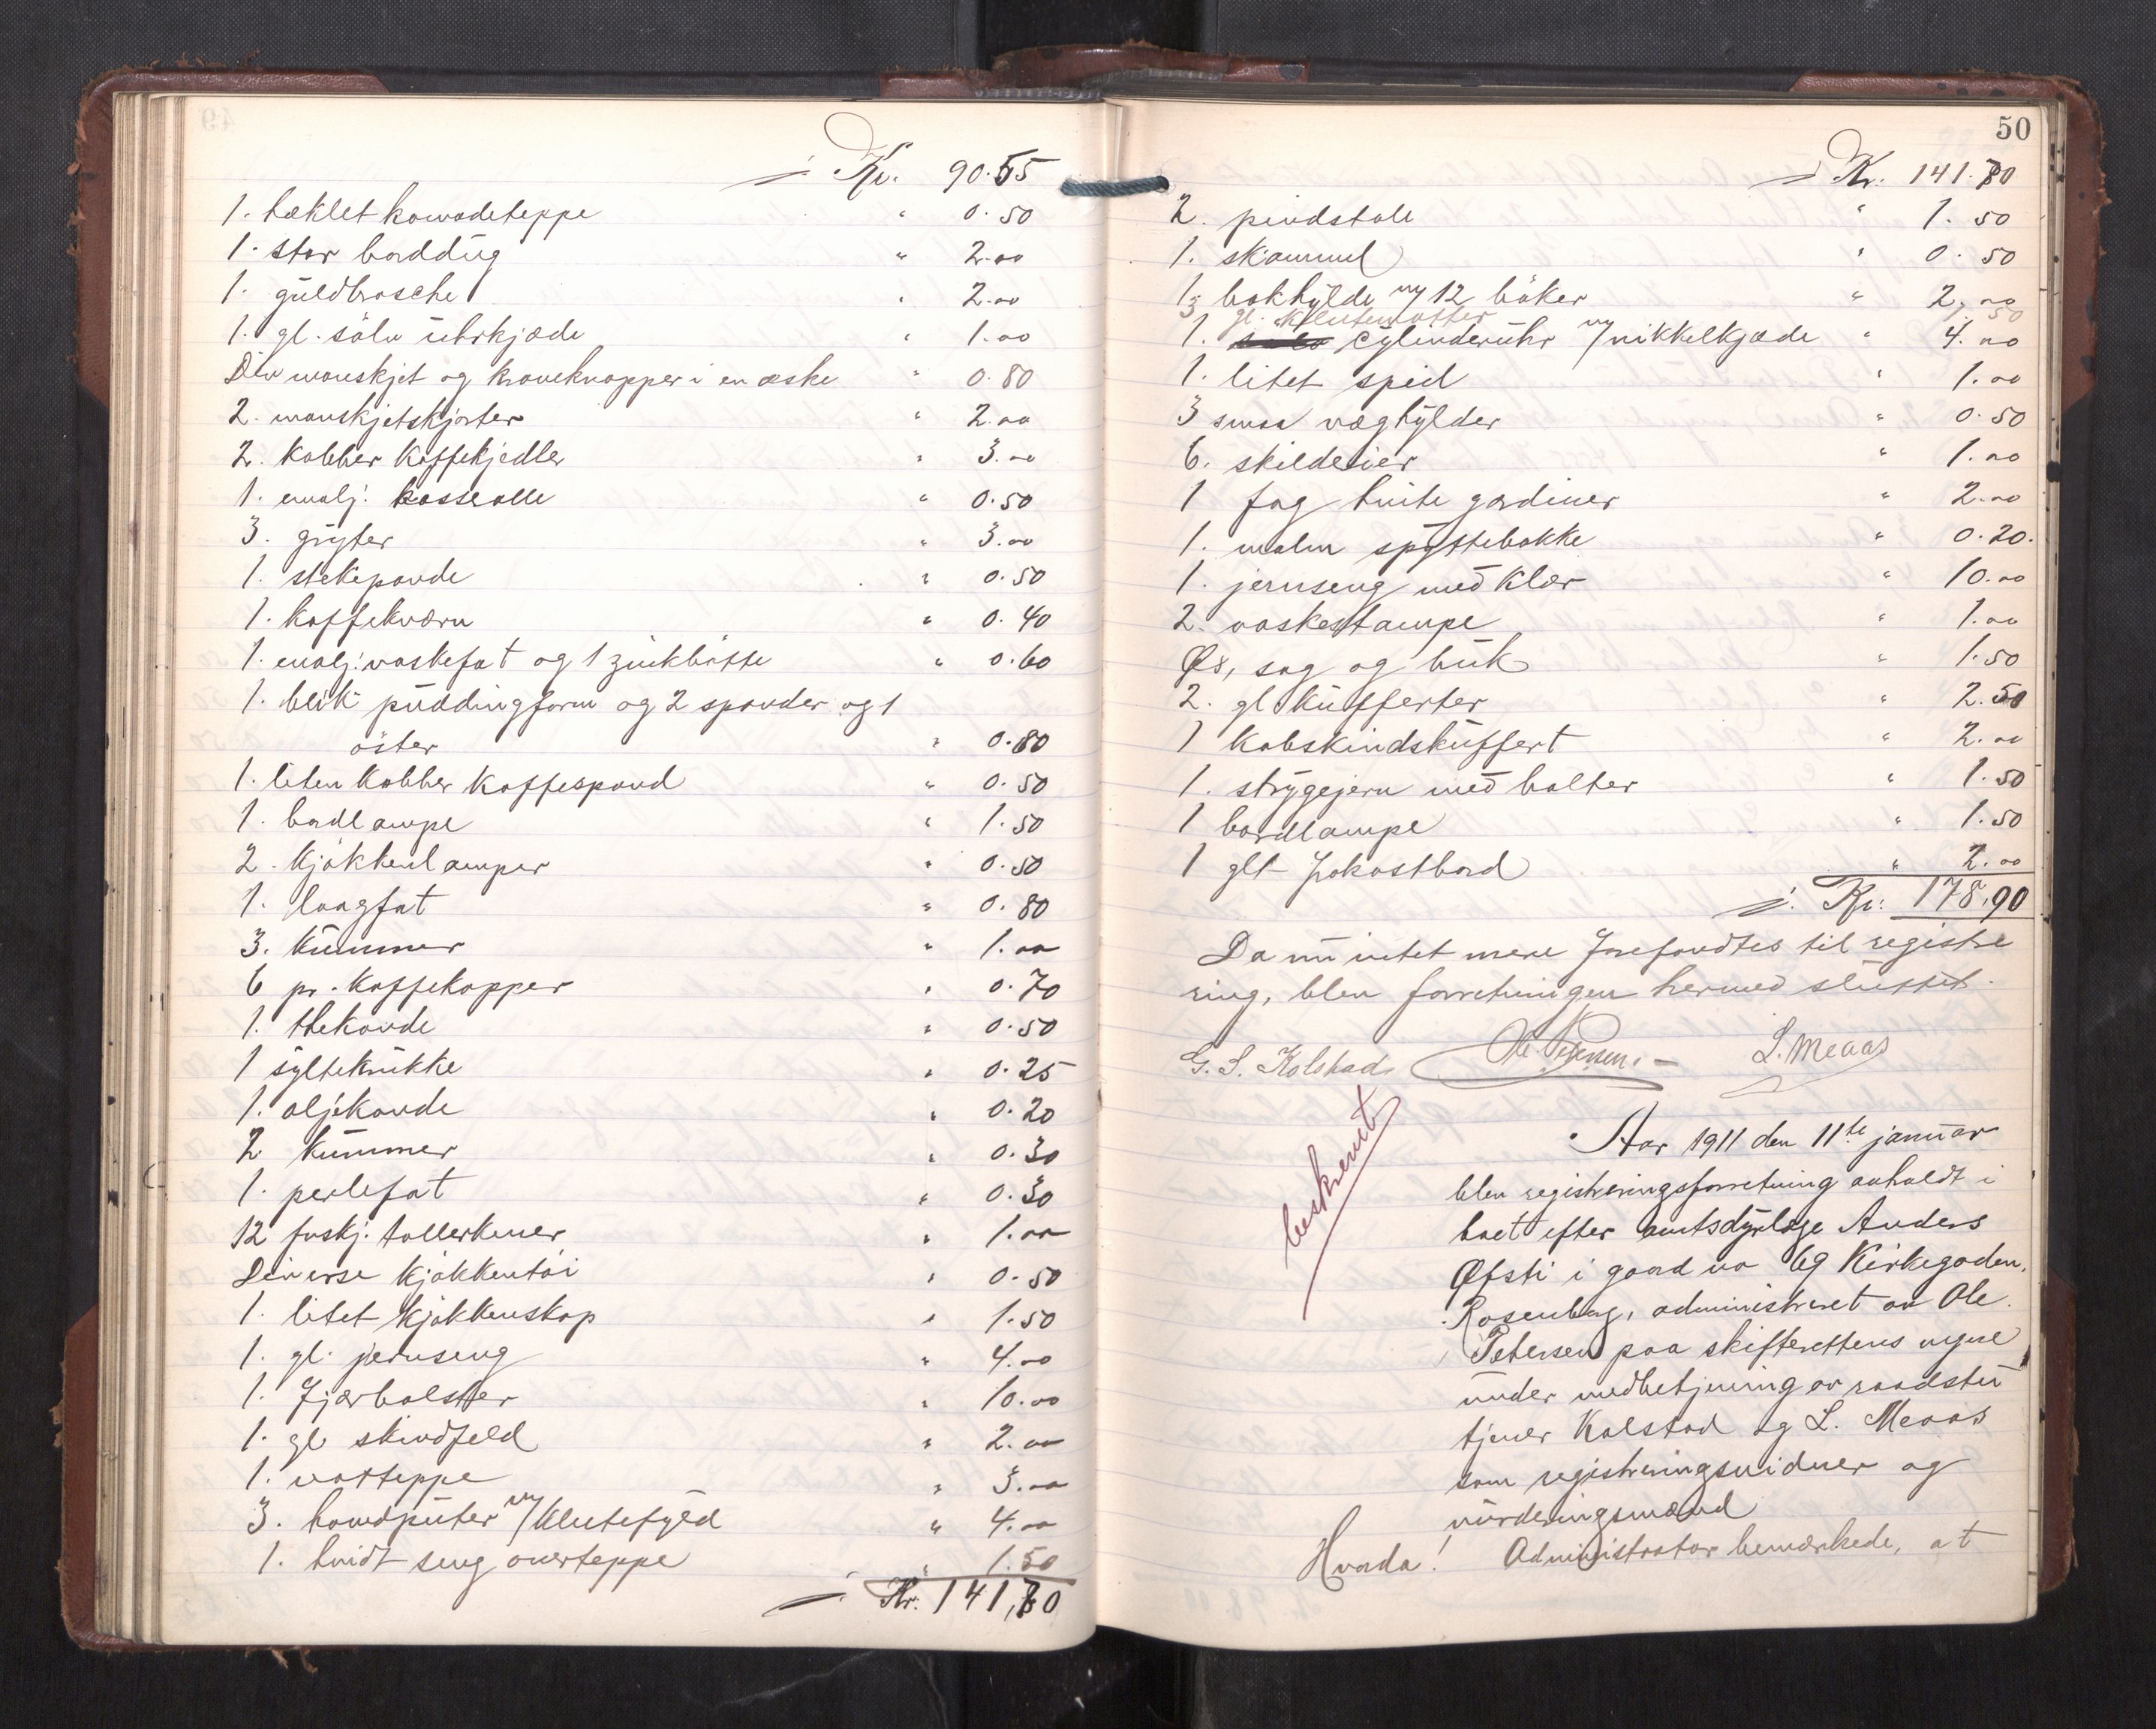 Kr. 90.55
1. hæklet komodeteppe " 0.50
1. stor borddug " 2.00
1. guldbrosche " 2.00
1. gl. sölv uhrkjæde " 1.00
Div manskjet og kraveknapper i en æske " 0.80
2. manskjetskjorter " 2.00
2. kobber kaffekjedler " 3.00
1. emalj. kasserolle " 0.50
3. gryter " 3.00
1. stekepande " 0.50
1. kaffekværn " 0.40
1. emalj. vaskefat og 1 zinkbötte " 0.60
1. blik puddingform og 2 spander og 1
öster " 0.80
1. liten kobber kaffespand " 0.50
1. bordlampe " 1.50
2. kjökkenlamper " 0.50
1. langfat " 0.80
3. kummer " 1.00
6 pr. kaffekopper " 0.70
1. thekande " 0.50
1 syltekrukke " 0.25
1. oljekande " 0.20
2 kummer " 0.30
1. perlefat " 0.30
12 forskj. tallerkener " 1.00
Diverse kjökkentöi " 0.50
1. litet kjökkenskap " 1.50
1. gl. jernseng " 4.00
1. fjærbolster " 10.00
1. gl skindfeld " 2.00
1. vatteppe " 3.00
3. hovedputer m/klutefyld " 4.00
1. hvidt seng overteppe " 1.50
Kr. 141,80
50
Kr. 141.80
2. pindstole " 1.50
1. skammel " 0.50
1. bokhylde m/ 12 böker " 2,00
3 gl. klutematter 50
1. cylinderuhr m/nikkelkjæde " 4.00
1. litet speil " 1.00
3 smaa væghylder " 0.50
6. skilderier " 1.00
1 fag hvite gardiner " 2.00
1. malm spyttebakke " 0.20.
1. jernseng med klær " 10.00
2. vaskestampe " 1.00
Øx, sag og huk " 1.50
2. gl kufferter " 2.50
1 kobskindskuffert " 2.00
1. strygejern med bolter " 1.50
1 bordlampe " 1.50
1 glt frokostbord " 2.00
Kr. 178,90
Da nu intet mere forefandtes til registre
ring, blev forretningen hermed sluttet.
G. S. Kolstad Ole Petersen. L. Meaas
beskrevet
Aar 1911 den 11te januar
blev registreringsforretning avholdt i
boet efter amtsdyrlæge Anders
Øfsti i gaard no 69 Kirkegaden,
Rosenborg, administreret av Ole
Petersen paa skifterettens vegne
under medbetjening av raadstu
tjener Kolstad og L. Meaas
som registreringsvidner og
vurderingsmænd
Hvorda! Administrator bemærkede, at